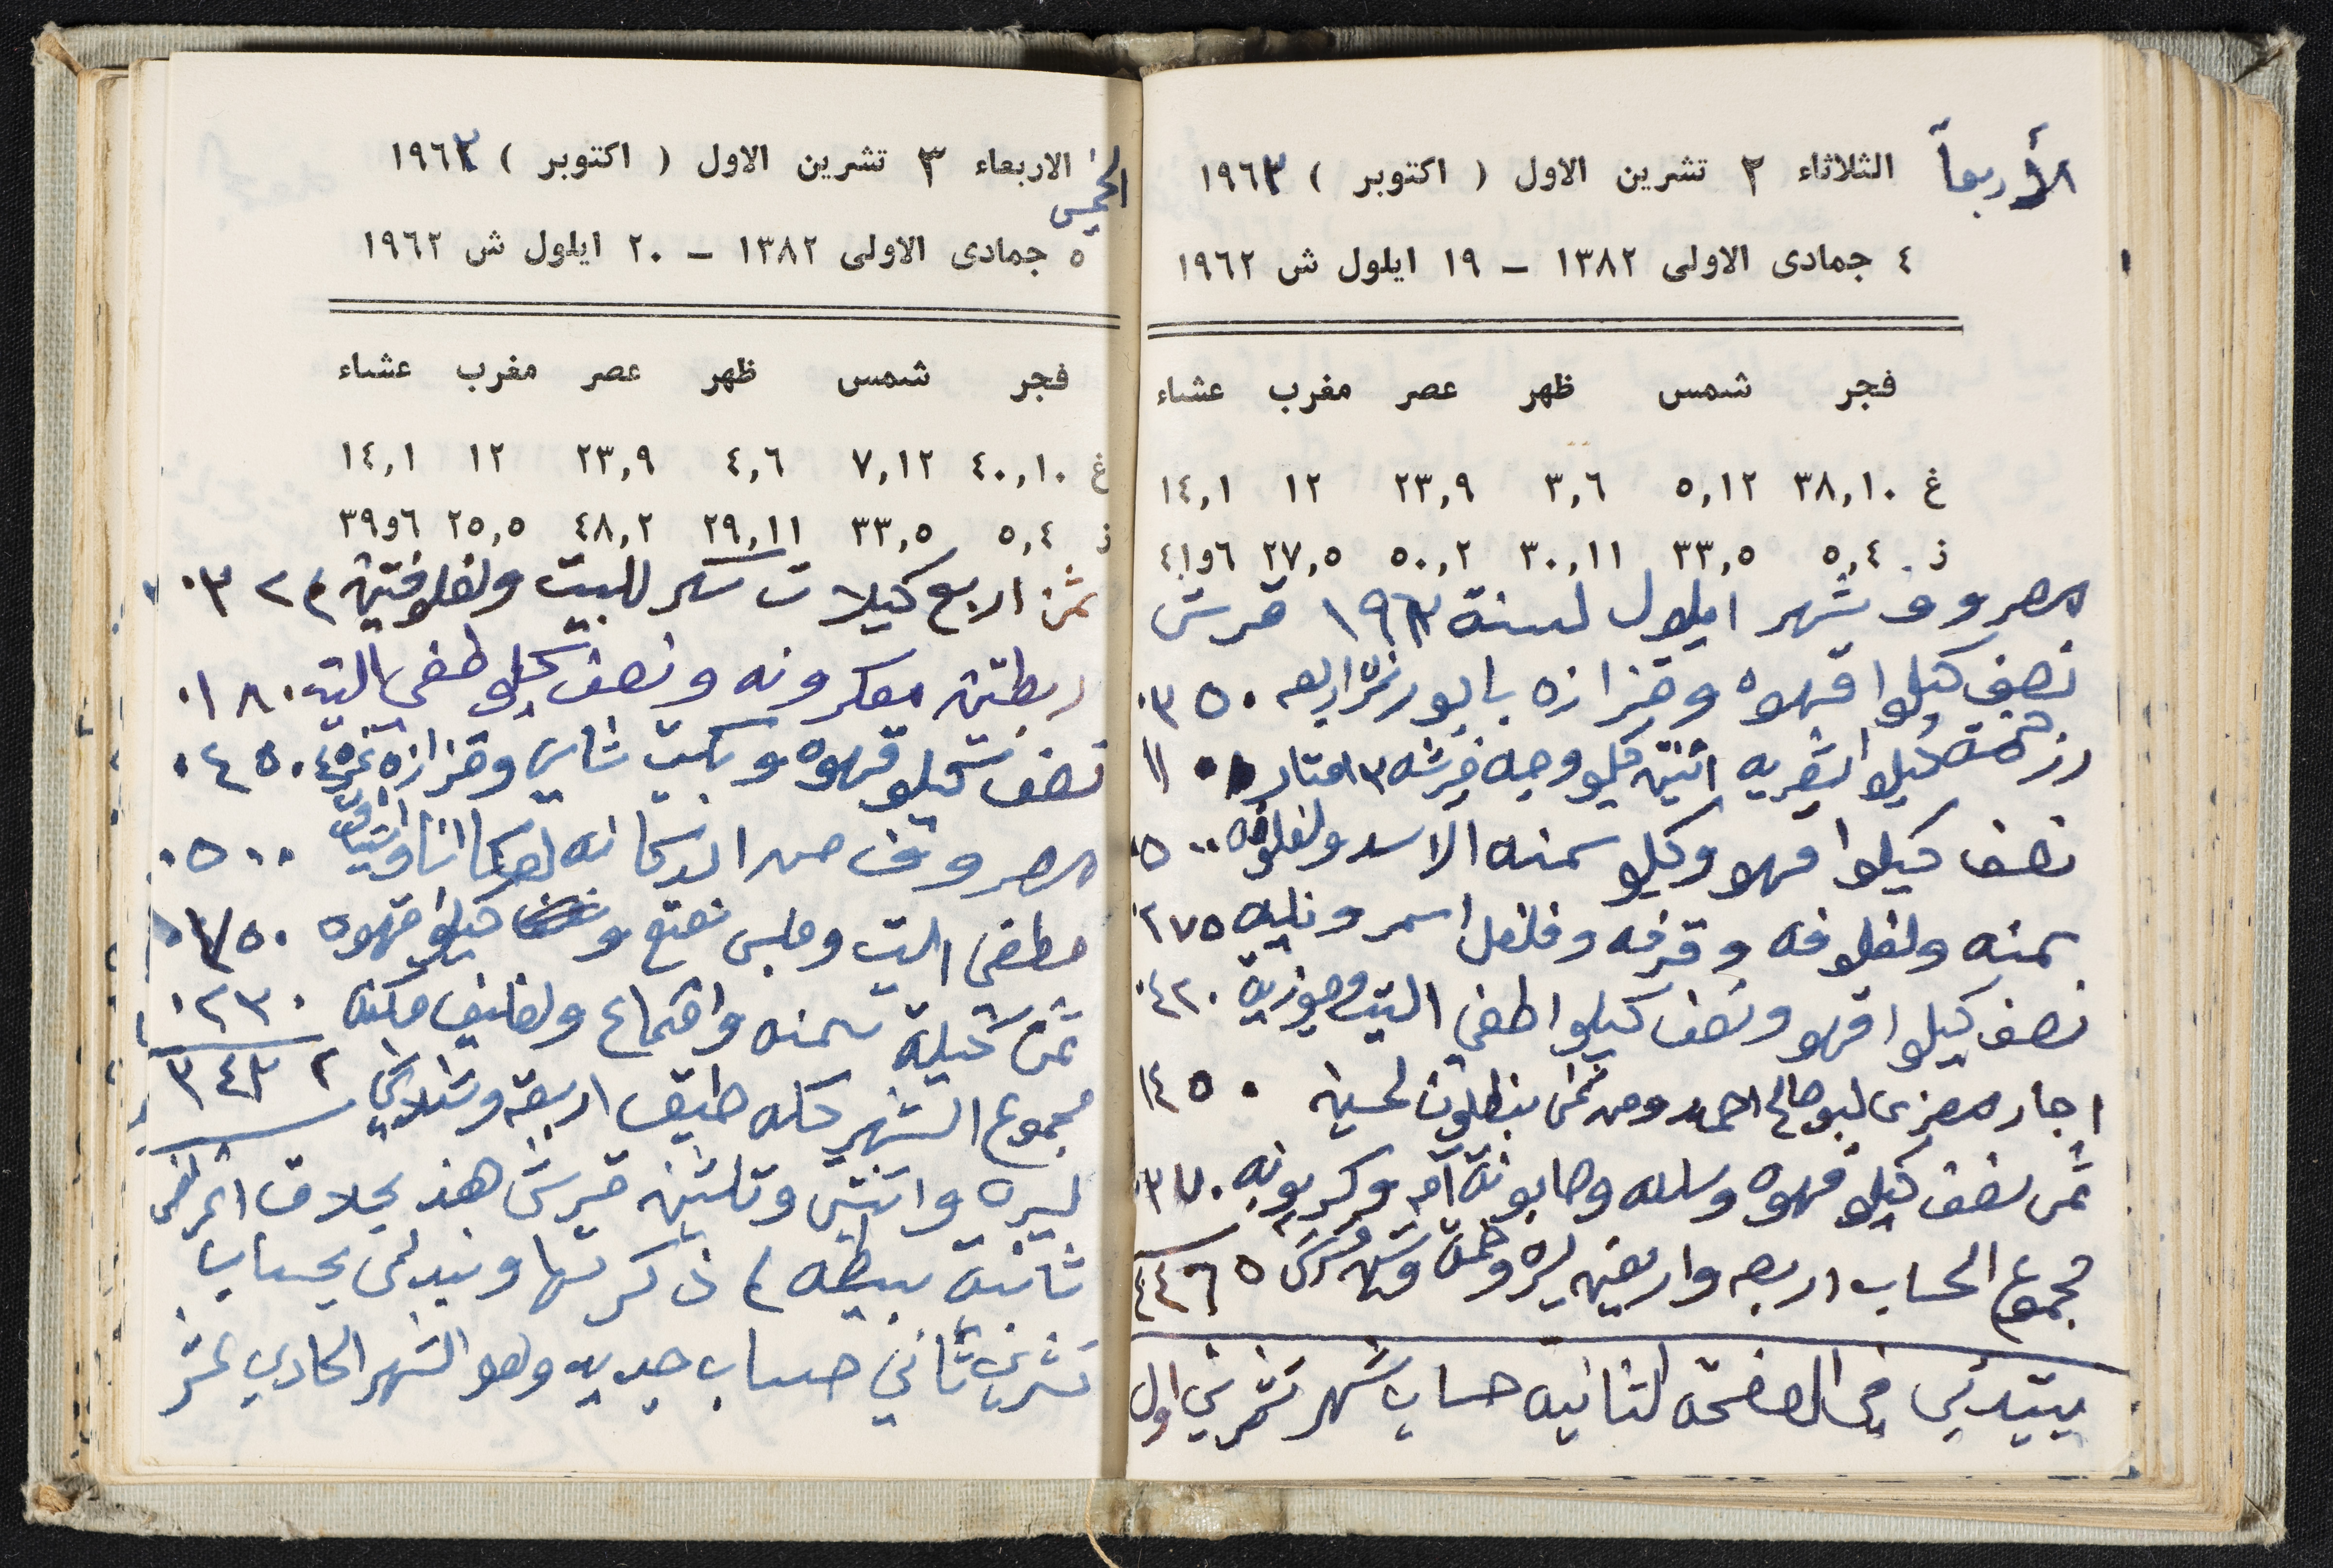 الأربعاً الثلاثاء ٢ تشرين الاول ( اكتوبر ) ١٩٦٣
٤ جمادى الاولى ١٣٨٢ – ١٩ ايلول ش ١٩٦٢
فجر شمس ظهر عصر مغرب عشاء
غ ٣٨,١٠ ٥,١٢ ٣,٦ ٢٣,٩ ١٢ ١٤,١
ز ٥,٤ ٣٣,٥ ٣٠,١١ ٥٠,٢ ٢٧,٥ ٦و٤١
مصروف شهر ايلول لسنة ١٩٦٣ قرش
نصف كيلوا قهوه وقزازه بابور نمرة اربعه ٠٣٥٠
رز خمسة كيلوا شعريه اثنين كيلو وجه فرشه ٣ امتار
نصف كيلوا قهو وكيلو سمنه الاسد ولفلوفه ٠٥٠٠
سمنه ولفلوفه وقرفه وفلفل اسمر ونليه ٢٧٥
نصف كيلوا قهو ونصف كيلوا طفي التيت وجوزية ٠٤٢٠
اجار مصرى لبو صالح احمد ومن ثمن بنطلون لحسين ١٤٥٠
ثمن نصف كيلو قهوه وسلله وصابونة وكربونه ٠٣٧٠
مجموع الحساب اربعه واربعين ليره وخمسة وستين قرش ٤٤٦٥
يبتدئي في الصفحة الثانيه حساب شهر تشرني اول
الخميس الاربعاء ٣ تشرين الاول ( اكتوبر ) ١٩٦٣
٥ جمادى الاولى ١٣٨٢ – ٢٠ ايلول ش ١٩٦٢
فجر شمس ظهر عصر مغرب عشاء
غ ٤٠,١٠ ٧,١٢ ٤,٦ ٢٣,٩ ١٢ ١٤,١
ز ٥,٤ ٣٣,٥ ٢٩,١١ ٤٨,٢ ٢٥,٥ ٦و٣٩
ثمن اربع كيلات سكر للبيت ولفلوفتين
ربطتين معكرونه ونصف كيلو طفي التيت ٠١٨٠
نصف كيلو قهوه وبكيت شاي وقزازه ٠٤٥٠
مصروف من الدكانه ٠٥٠٠
مطفي التيت وملبس نعنع و كيلوا قهوه
ثمن كيلة سمنه واقماع ولفاليف مكنة ٠٢٣٠
مجموع الشهر كله طبق اربعة وثلاثين ٣٤٣٢
ليره واثنين وتلثين قرش هذ بخلاف اغراض
ثانية بسيطه ما ذكرتها ونبدئي بحساب
تشرين ثاني حساب جديد وهو الشهر الحادي عشر